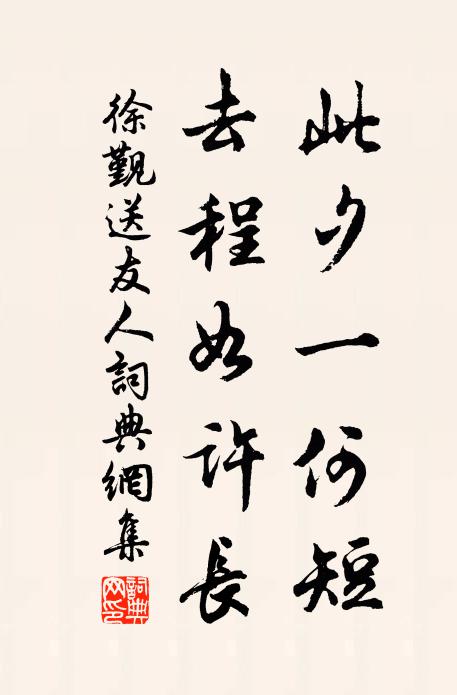 此夕一何短
去程如許長
徐觀送友人詞典網集
詞典網印